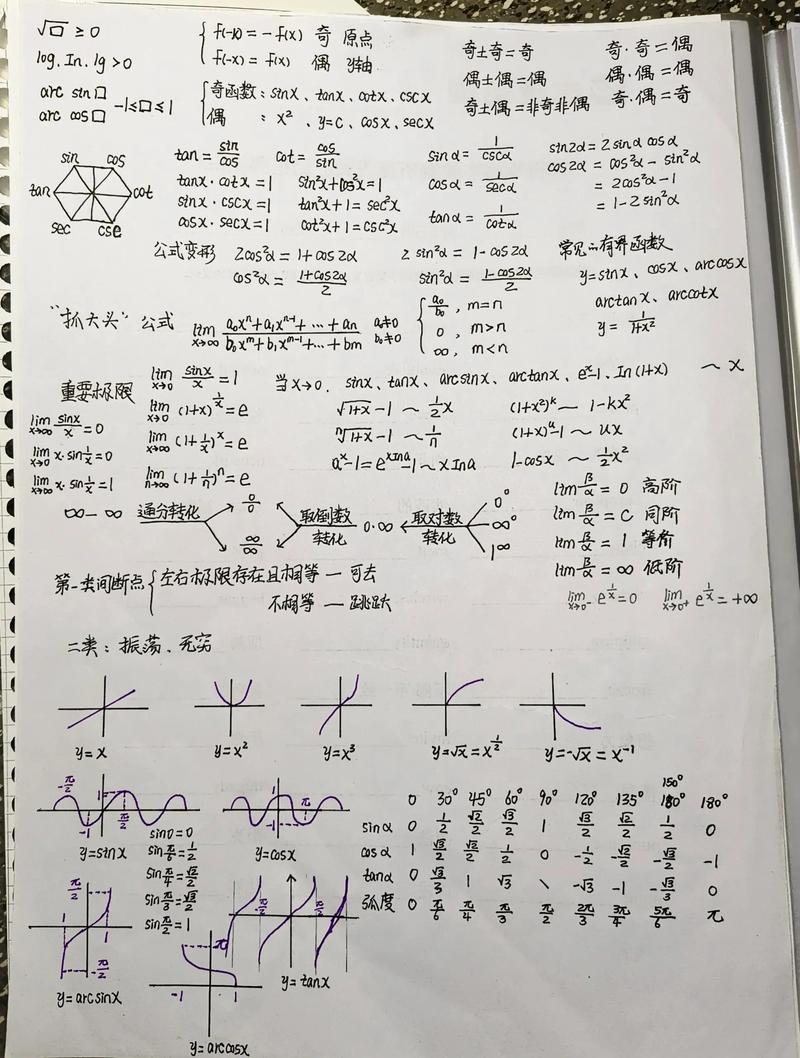 √□ ≥ 0
log. In. lg > 0
arc sin□
arc cos□
-1≤□≤1
f(-x) = -f(x) 奇 原点
f(-x) = f(x) 偶 y轴
奇函数: sinx、tanx、cotx、cscx
偶 : x²、y=c、cosx、secx
奇±奇=奇
偶±偶=偶
奇±偶=非奇非偶
奇·奇=偶
偶·偶=偶
奇·偶=奇
sin cos
tan cot
sec csc
tan = sin/cos cot = cos/sin
tanx·cotx=1 sin²x+cos²x=1
sinx·cscx=1 tan²x+1=sec²x
cosx·secx=1 cot²x+1=csc²x
sinα = 1/cscα
cosα = 1/secα
tanα = 1/cotα
sin2α = 2sinα cosα
cos2α = cos²α - sin²α
= 2cos²α-1
= 1-2sin²α
公式变形 2cos²α = 1+cos2α 2sin²α = 1-cos2α
cos²α = (1+cos2α)/2 sin²α = (1-cos2α)/2
常见的有界函数
y=sinx、cosx、arccosx
arctanx、arccotx
y = 1/(1+x²)
"抓大头" 公式 lim x→∞ (a₀xⁿ+a₁xⁿ⁻¹+…+an)/(b₀xᵐ+b₁xᵐ⁻¹+…+bm) a₀≠0 b₀≠0
a₀/b₀, m=n
0, m>n
∞, m<n
重要极限
lim x→∞ sinx/x = 0
lim x→0 x·sin1/x = 0
lim x→∞ x·sin1/x = 1
lim x→0 sinx/x = 1
lim x→0 (1+x)^(1/x) = e
lim x→∞ (1+1/x)^x = e
lim n→∞ (1+1/n)^n = e
当x→0. sinx、tanx、arcsinx、arctanx、e^x-1、In(1+x) ~ x
√(1+x) -1 ~ 1/2x (1+x²)^k ~ 1-kx²
ⁿ√(1+x) -1 ~ 1/n (1+x)^u-1 ~ ux
a^x-1 = e^(xIna)-1 ~ xIna 1-cosx ~ 1/2x²
∞-∞ 通分转化 0/0 ∞/∞ 取倒数转化 0·∞ 取对数转化 0⁰ ∞⁰ 1^∞
lim β/α = 0 高阶
lim β/α = C 同阶
lim β/α = 1 等价
lim β/α = ∞ 低阶
lim x→0⁻ e^(1/x) = 0 lim x→0⁺ e^(1/x) = +∞
第一类间断点 左右极限存在且相等一可去
不相等一跳跃
二类: 振荡、无穷
y=x y=x² y=x³ y=√x = x^(1/2) y=-√x = x⁻¹
-π/2 1 -1 π/2
y=sinx
1 π
y=cosx
sin0=0
sinπ/6=1/2
sinπ/4=√2/2
sinπ/3=√3/2
sinπ/2=1
150°
0 30° 45° 60° 90° 120° 135° 180°
sinα 0 1/2 √2/2 √3/2 1 √3/2 √2/2 1/2 0
cosα 1 √3/2 √2/2 1/2 0 -1/2 -√2/2 -√3/2 -1
tanα 0 √3/3 1 √3 \ -√3 -1 -√3/3 0
弧度 0 π/6 π/4 π/3 π/2 2π/3 3π/4 5π/6 π
π/2 1 1 -π/2
y=arcsinx
π -1 1
y=arccosx
-π/2 π/2
y=tanx